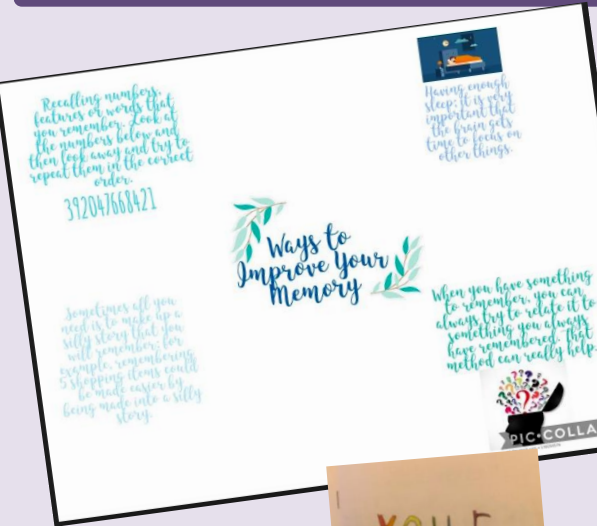 Recalling numbers,
features or words that
you remember. Look at
the numbers below and
then look away and try to
repeat them in the correct
order.
392047668421
Having enough
sleep: It is very
important that
the brain gets
time to focus on
other things.
Ways to
Improve Your
Memory
Sometimes all you
need is to make up a
silly story that you
will remember, for
example, remembering
5 shopping items could
be made easier by
being made into a silly
story.
When you have something
to remember, you can
always try to relate it to
something you always
have remembered. That
method can really help.
PIC•COLLA
your